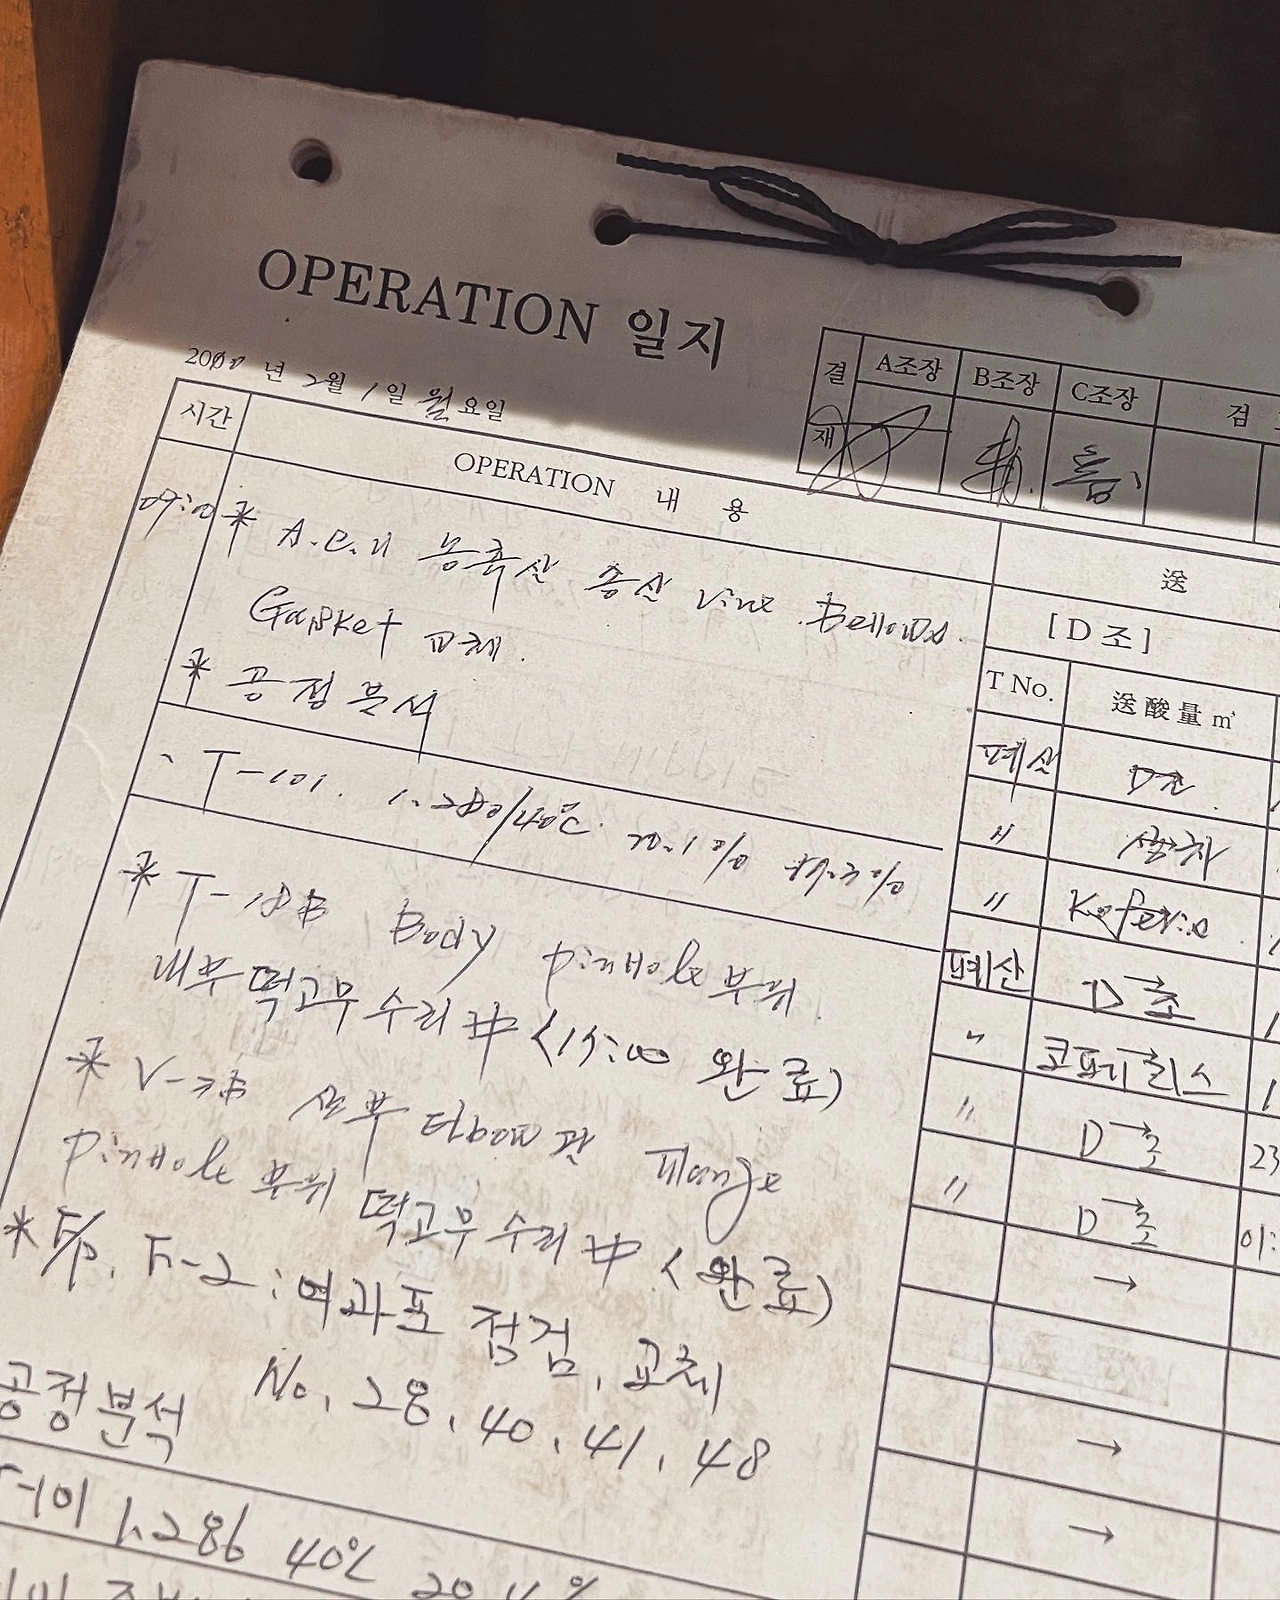 OPERATION 일지
년 2월 1일 월요일
결재
A조장 B조장 C조장 검
시간 OPERATION 내 용
09:00 * A.C.U 농축산 송산 Line Bellows
Gasket 교체.
* 공정분석
T-101. 1.280/40℃ 20.1%
* T-18B Body pinHole 부위
내부 떡고무 수리 中 (15:00 완료)
* V-7B 상부 Elbow관 Flange
pinHole 부위 떡고무 수리 中 (완료)
* F/P. F-2 : 여과포 점검, 교체
No. 28, 40, 41, 48
공정분석
T-101 1.286 40℃ 20.4%
送
[D조]
T No. 送酸量 ㎥
폐산
〃
〃
폐산 D→조
〃 코페리스
〃 D→조 23
〃 D→조 01:
→
→
→